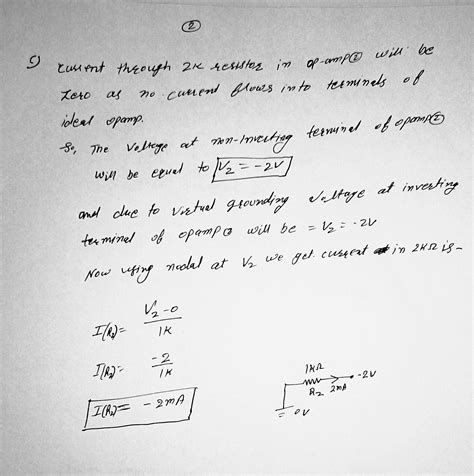 ②
c) Current through 2K resistor in op-amp② will be
zero as no current flows into terminals of
ideal opamp.
So, The Voltage at non-Inverting terminal of opamp②
will be equal to V₂ = -2V
and due to virtual grounding voltage at inverting
terminal of opamp② will be = V₂ = -2V
Now using nodal at V₂ we get current in 2KΩ is -
I(R₂) = V₂-0 / 1K
I(R₂) = -2 / 1K
I(R₂) = -2mA
1KΩ
-2V
R₂ 2mA
0V